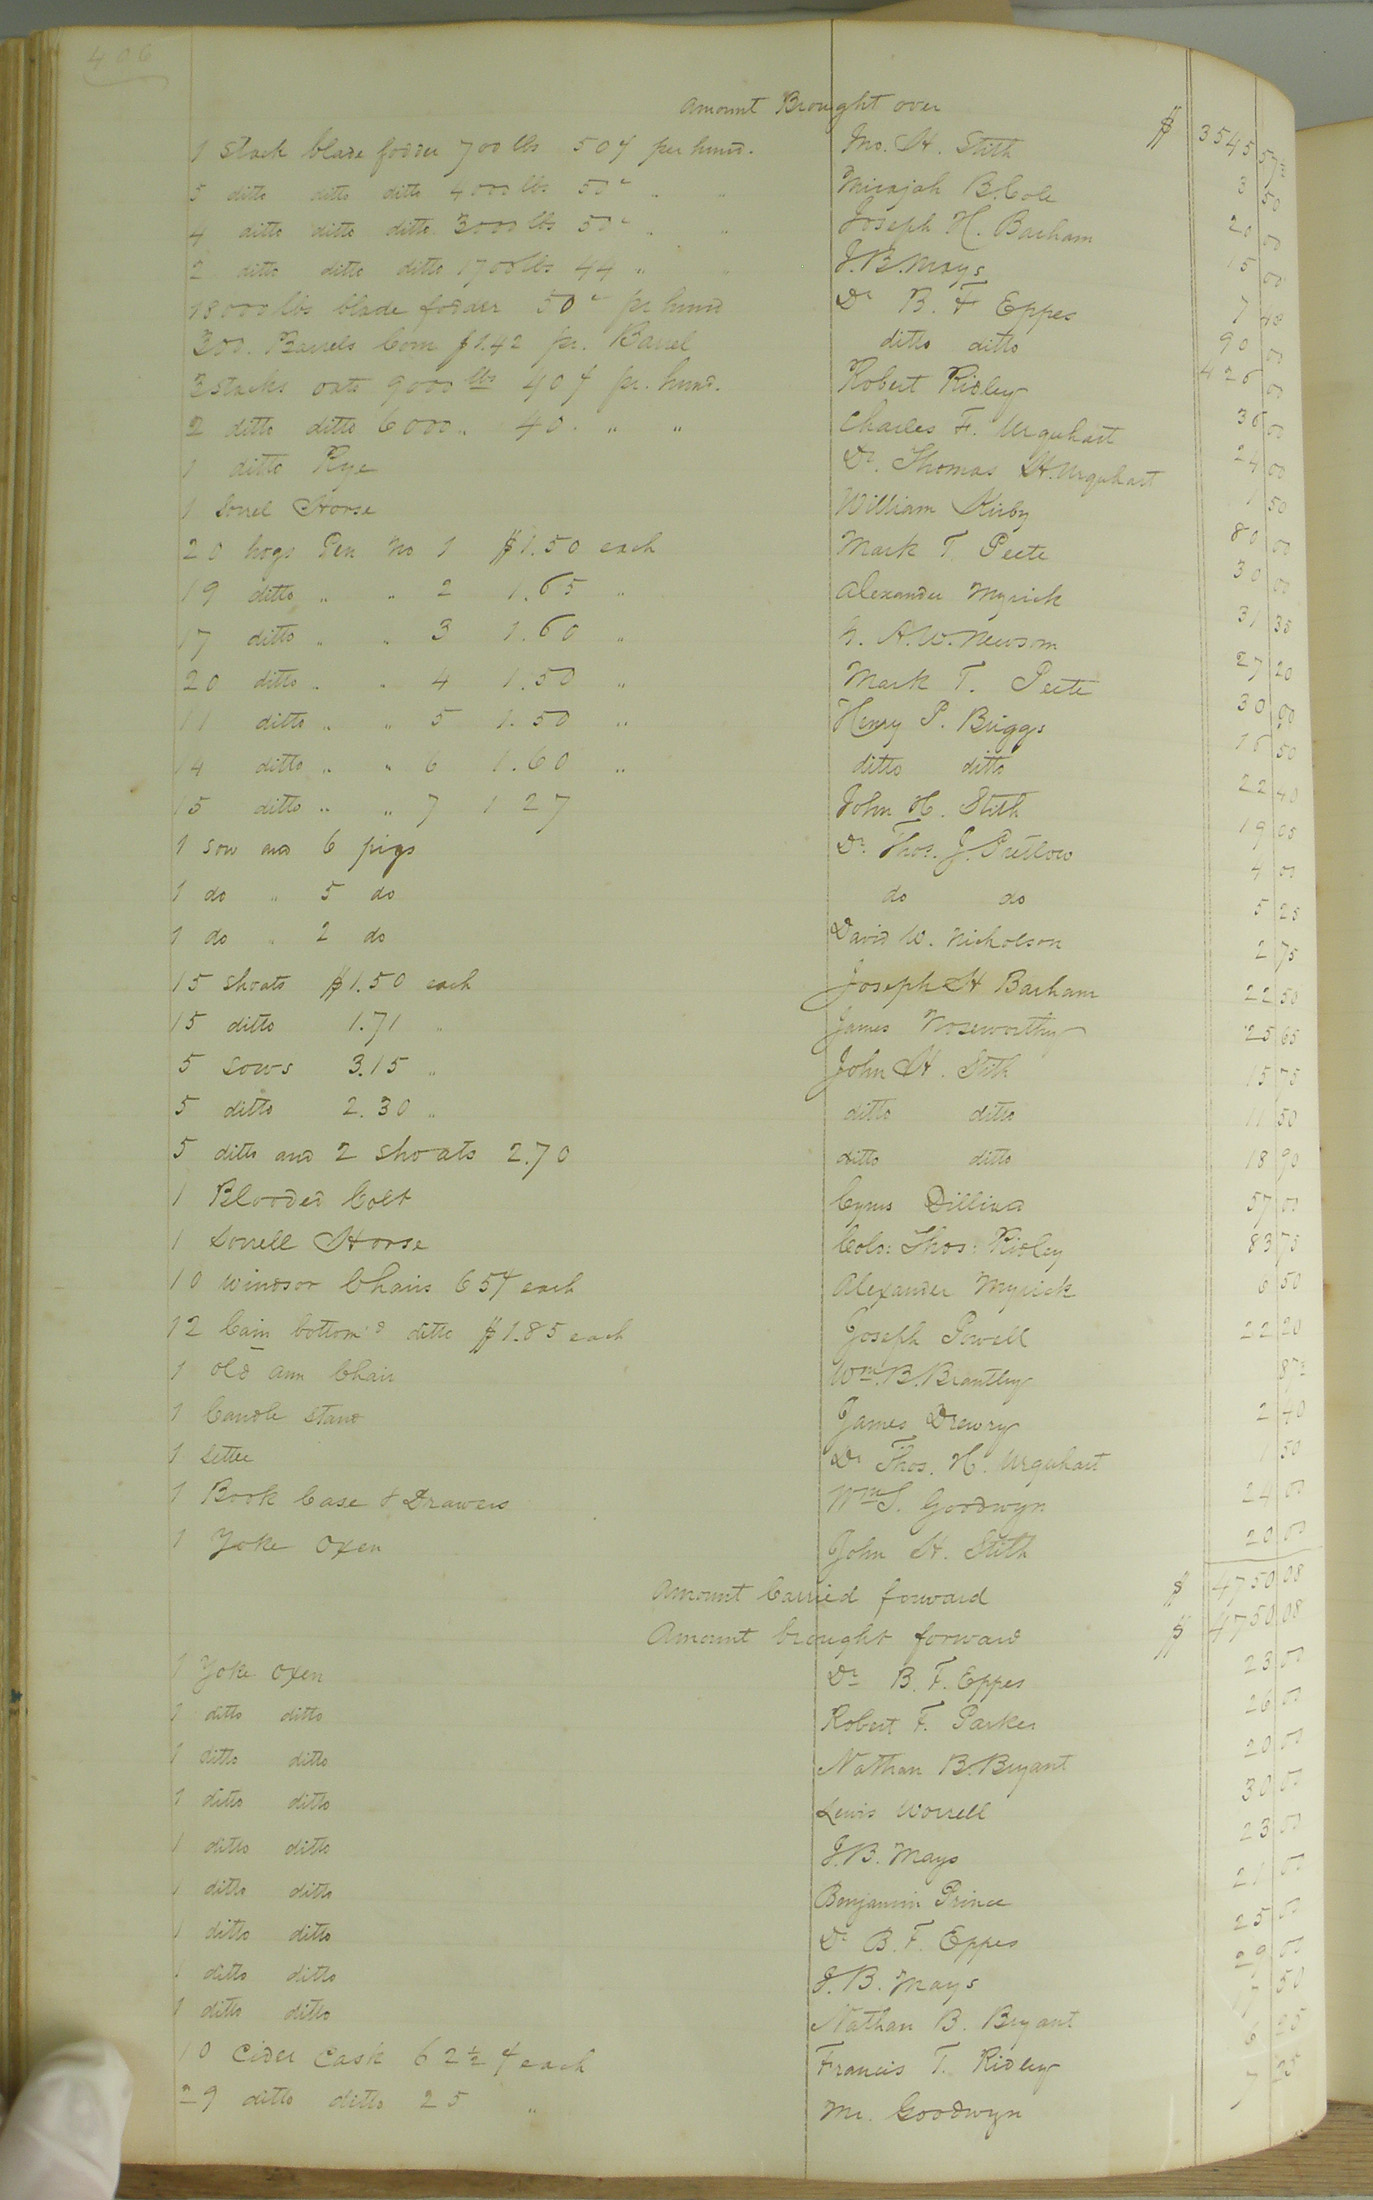 406
Amount Brought over $ 3545 57½
1 stack blade fodder 700 lbs 50¢ per hund. Jno. H. Stith 3 50
5 ditto ditto ditto 4000 lbs 50 " " Micajah B. Cole 20 00
4 ditto ditto ditto 3000 lbs 50 " " Joseph H. Barham 15 00
2 ditto ditto ditto 1700 lbs 44 " " J. B. Mays 7 48
18000 lbs blade fodder 50 pr hund Dr B. F Eppes 90 00
300. Barrels Corn $1.42 pr. Barrel ditto ditto 426 00
3 stacks oats 9000 lbs 40¢ pr. hund. Robert Ridley 36 00
2 ditto ditto 6000 " 40 " " Charles F. Urquhart 24 00
1 ditto Rye Dr. Thomas H. Urquhart 1 50
1 Sorrel Horse William Kirby 80 00
20 hogs Pen No 1 $1.50 each Mark T. Peete 30 00
19 ditto " " 2 1.65 " Alexander Myrick 31 35
17 ditto " " 3 1.60 " A. W. Newsom 27 20
20 ditto " " 4 1.50 " Mark T. Peete 30 00
11 ditto " " 5 1.50 " Henry P. Briggs 16 50
14 ditto " " 6 1.60 " ditto ditto 22 40
15 ditto " " 7 1 27 John H. Stith 19 05
1 sow and 6 pigs Dr. Thos. J. Pretlow 4 00
1 do " 5 do do do 5 25
1 do " 2 do David W. Nicholson 2 75
15 shoats $1.50 each Joseph H Barham 22 50
15 ditto 1.71 " James Noseworthy 25 65
5 Sows 3.15 " John H. Stith 15 75
5 ditto 2.30 " ditto ditto 11 50
5 ditto and 2 shoats 2.70 ditto ditto 18 90
1 Blooded Colt Cyrus Dilliard 57 00
1 Sorrell Horse Colo: Thos: Ridley 83 75
10 windsor Chairs 65¢ each Alexander Myrick 6 50
12 Cain bottom'd ditto $1.85 each Joseph Powell 22 20
1 old arm Chair Wm. B. Brantley 87½
1 Candle Stand James Drewry 2 40
1 Settee Dr Thos. H. Urquhart 1 50
1 Book Case & Drawers Wm S. Goodwyn 24 00
1 Yoke Oxen John H. Stith 20 00
Amount Carried forward $ 4750 08
Amount brought forward $ 4750 08
1 Yoke Oxen Dr B. F. Eppes 23 00
1 ditto ditto Robert F. Parker 26 00
1 ditto ditto Nathan B. Bryant 20 00
1 ditto ditto Lewis Worrell 30 00
1 ditto ditto J. B. Mays 23 00
1 ditto ditto Benjamin Prince 21 00
1 ditto ditto Dr B. F. Eppes 25 00
1 ditto ditto J. B. Mays 29 00
1 ditto ditto Nathan B. Bryant 17 50
10 Cider Cask 62½¢ each Francis T. Ridley 6 25
29 ditto ditto 25 " Mr. Goodwyn 7 25